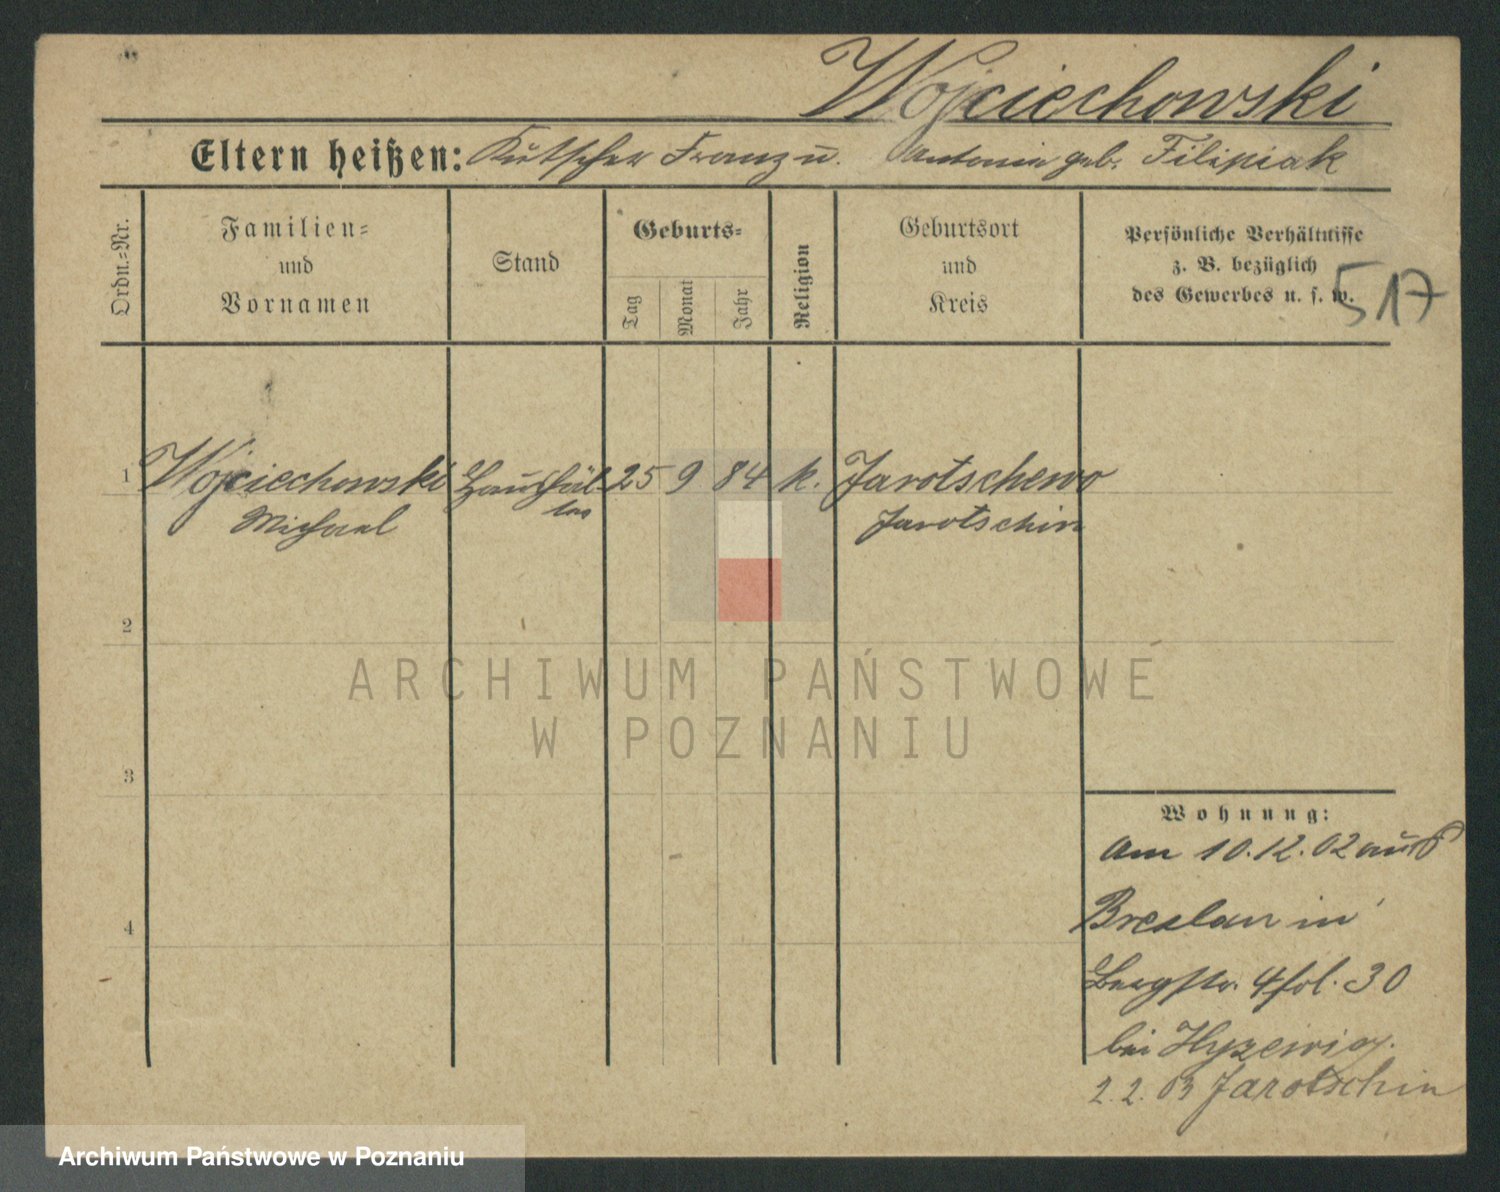 Wojciechowski
Eltern heißen: Kutscher Franz u. Antonia geb. Filipiak
Ordn.-Nr.
Familien-
und
Vornamen
Stand
Geburts-
Tag
Monat
Jahr
Religion
Geburtsort
und
Kreis
Persönliche Verhältnisse
z. B. bezüglich
des Gewerbes u. s. w.
517
1 Wojciechowski Haushäl- 25 9 84 k. Jarotschewo
Michael ter Jarotschin
2
3
4
Wohnung:
Am 10.12.02 aus
Breslau in
Bergstr. 4 fol. 30
bei
2.2.03 Jarotschin
ARCHIWUM PAŃSTWOWE
W POZNANIU
Archiwum Państwowe w Poznaniu